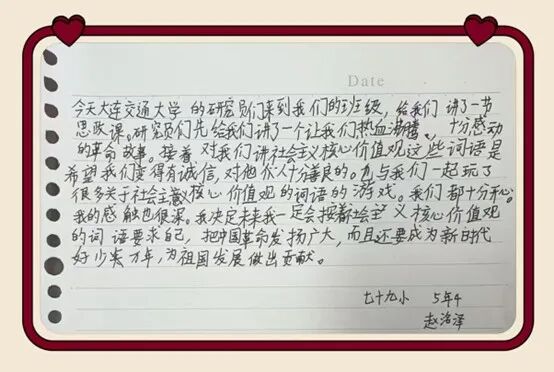 Date
今天大连交通大学的研究员们来到我们的班级，给我们讲了一节
思政课。研究员们先给我们讲了一个让我们热血沸腾、十分感动
的革命故事。接着对我们讲社会主义核心价值观这些词语是
希望我们变得有诚信，对他人十分善良的。也与我们一起玩了
很多关于社会主义核心价值观的词语的游戏。我们都十分开心。
我的感触也很深。我决定未来我一定会按着社会主义核心价值观
的词语要求自己，把中国革命发扬广大，而且还要成为新时代
好少年，为祖国发展做出贡献。
七十九小 5年4
赵治泽